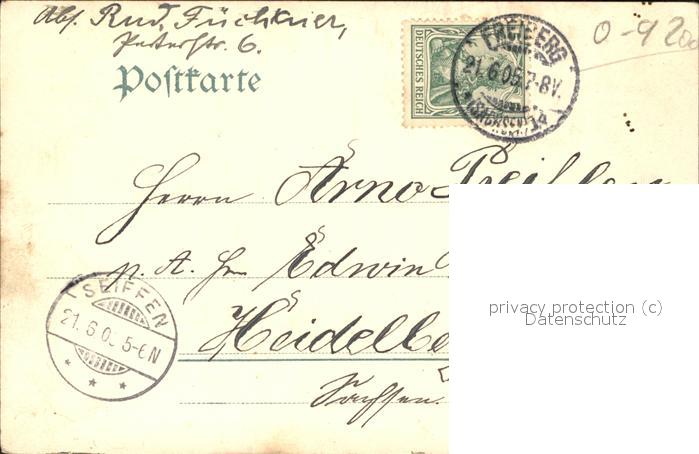 Abs. Rud. Füchtner,
Petersstr. 6.
Postkarte
DEUTSCHES REICH
FREIBERG
21.6.05.7-8V.
(SACHSEN)
0-4200
Herrn Arno
p. A. Hrn Edwin
Heidelbe
Sachsen.
SEIFFEN
21.6.05 5-6N
* * *
privacy protection (c)
Datenschutz